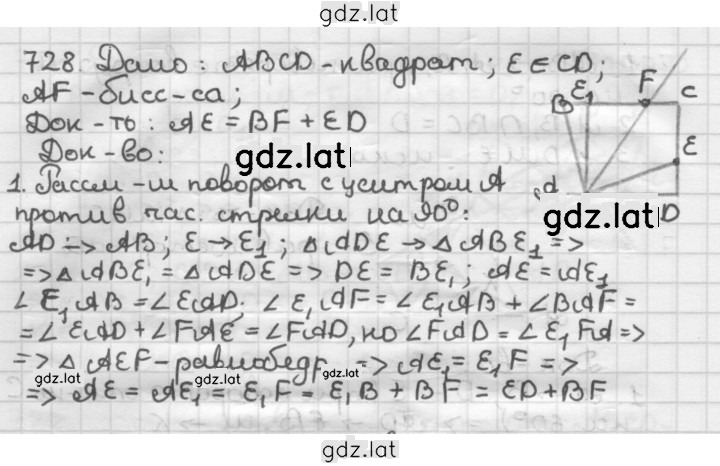 gdz.lat
728. Дано: ABCD - квадрат; E ∈ CD;
AF - бисс-са;
Док-ть: AE = BF + ED
Док-во:
gdz.lat
1. Рассм-м поворот с центром A
против час. стрелки на 90°:
AD → AB; E → E₁; △ADE → △ABE₁ =>
=> △ABE₁ = △ADE => DE = BE₁; AE = AE₁
∠E₁AB = ∠EAD; ∠E₁AF = ∠E₁AB + ∠BAF =
= ∠EAD + ∠FAE = ∠FAD, но ∠FAD = ∠E₁FA =>
=> △AEF - равнобедр. => AE₁ = E₁F =>
=> AE = AE₁ = E₁F = E₁B + BF = ED + BF
B E₁ F C
E
A D
gdz.lat
gdz.lat
gdz.lat
gdz.lat
gdz.lat